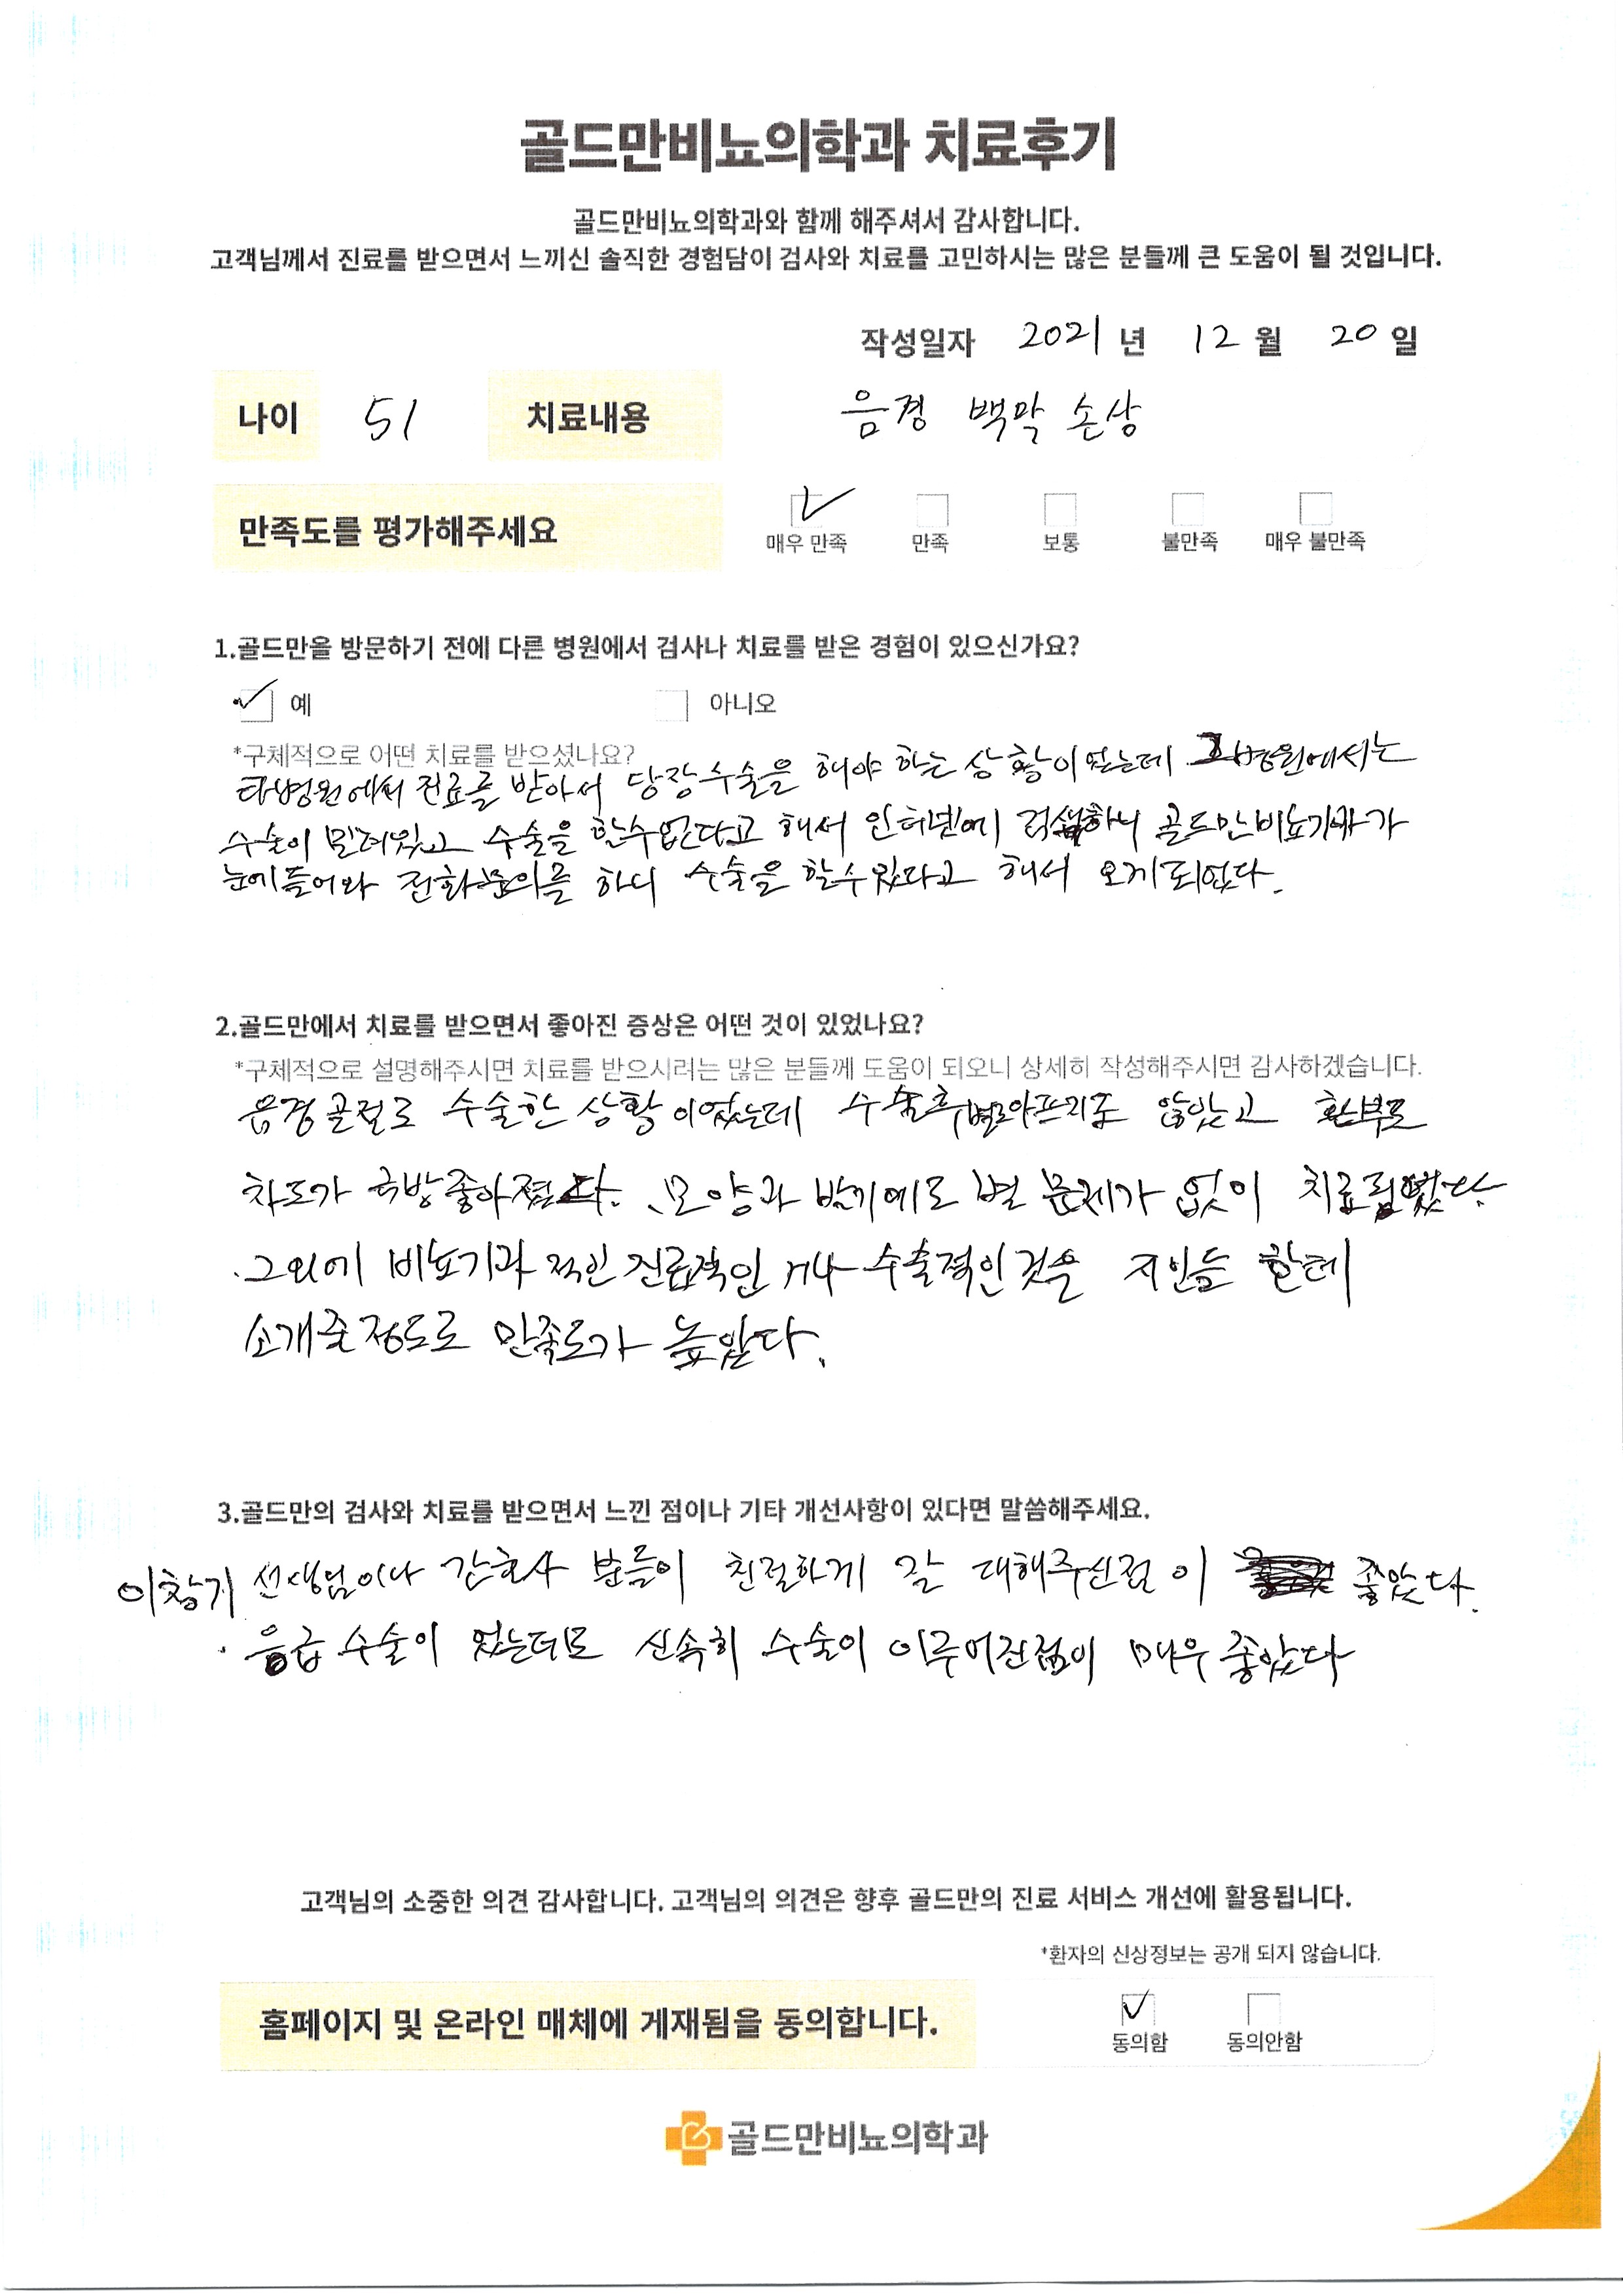 골드만비뇨의학과 치료후기
골드만비뇨의학과와 함께 해주셔서 감사합니다.
고객님께서 진료를 받으면서 느끼신 솔직한 경험담이 검사와 치료를 고민하시는 많은 분들께 큰 도움이 될 것입니다.
작성일자 2021 년 12 월 20 일
나이 51 치료내용 음경 백막 손상
만족도를 평가해주세요
매우 만족 만족 보통 불만족 매우 불만족
1.골드만을 방문하기 전에 다른 병원에서 검사나 치료를 받은 경험이 있으신가요?
예 아니오
*구체적으로 어떤 치료를 받으셨나요?
타병원에서 진료를 받아서 당장수술을 해야 하는 상황이었는데 그병원에서는
수술이 밀려있고 수술을 할수없다고 해서 인터넷에 검색하니 골드만비뇨기과가
눈에들어와 전화문의를 하니 수술을 할수있다고 해서 오게되었다.
2.골드만에서 치료를 받으면서 좋아진 증상은 어떤 것이 있었나요?
*구체적으로 설명해주시면 치료를 받으시려는 많은 분들께 도움이 되오니 상세히 작성해주시면 감사하겠습니다.
음경골절로 수술한 상황이었는데 수술후 별로아프지도 않았고 환부도
차도가 금방좋아졌다. 모양과 발기에도 별 문제가 없이 치료되었다.
그외에 비뇨기과적인 진료적인거나 수술적인것을 지인들 한테
소개줄정도로 만족도가 높았다.
3.골드만의 검사와 치료를 받으면서 느낀 점이나 기타 개선사항이 있다면 말씀해주세요.
이창기 선생님이나 간호사 분들이 친절하게 잘 대해주신점이 좋았다.
응급수술이 었는데도 신속히 수술이 이루어진점이 매우 좋았다
고객님의 소중한 의견 감사합니다. 고객님의 의견은 향후 골드만의 진료 서비스 개선에 활용됩니다.
*환자의 신상정보는 공개 되지 않습니다.
홈페이지 및 온라인 매체에 게재됨을 동의합니다.
동의함 동의안함
골드만비뇨의학과